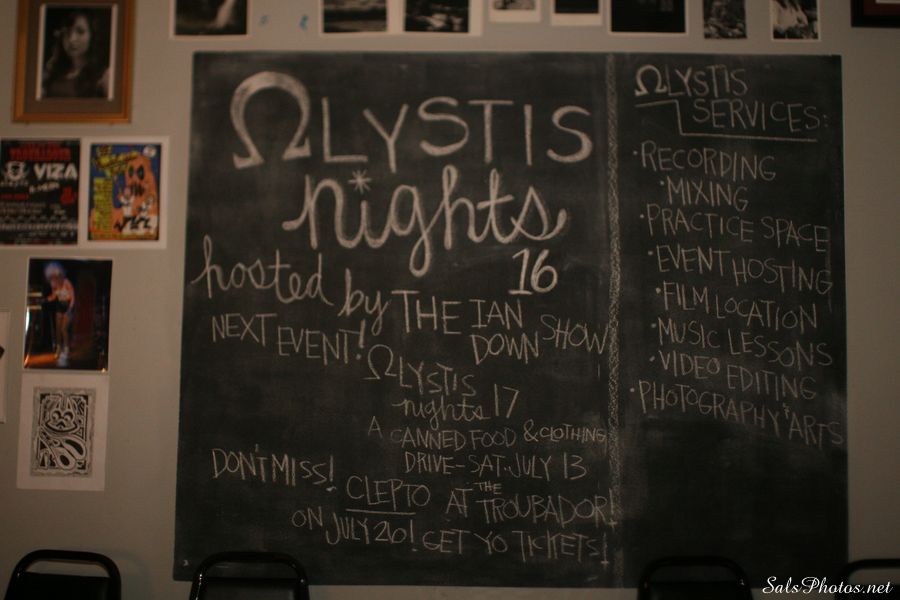 ΩLYSTIS
nights
16
hosted by THE IAN
DOWN SHOW
NEXT EVENT!
ΩLYSTIS
nights 17
A CANNED FOOD & CLOTHING
DRIVE-SAT. JULY 13
DON'T MISS!
CLEPTO AT THE
TROUBADOR!
ON JULY 20! GET YO TICKETS!
ΩLYSTIS
SERVICES:
·RECORDING
·MIXING
·PRACTICE SPACE
·EVENT HOSTING
·FILM LOCATION
·MUSIC LESSONS
·VIDEO EDITING
·PHOTOGRAPHY & ARTS
TROUBADOUR
VIZA
SalsPhotos.net